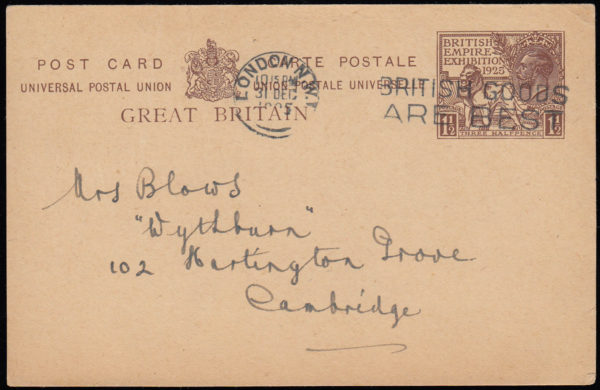 POST CARD
CARTE POSTALE
UNIVERSAL POSTAL UNION
UNION POSTALE UNIVERSELLE
GREAT BRITAIN
LONDON. N.W.1.
10 15 PM
31 DEC
1925
BRITISH GOODS
ARE BEST
BRITISH
EMPIRE
EXHIBITION
1925
1½
THREE HALFPENCE
1½
Mrs Blows
"Wythburn"
102 Hartington Grove
Cambridge